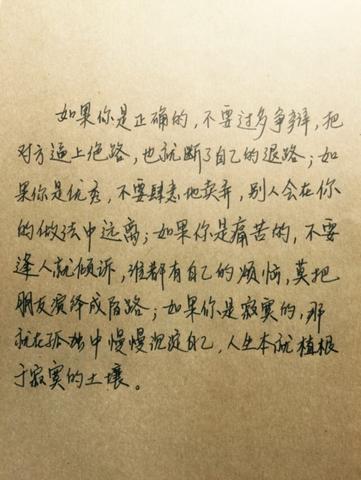 如果你是正确的，不要过多争辩，把
对方逼上绝路，也就断了自己的退路；如
果你是优秀，不要肆恙地卖弄，别人会在你
的做法中远离；如果你是痛苦的，不要
逢人就倾诉，谁都有自己的烦恼，莫把
朋友演绎成陌路；如果你是寂寞的，那
就在孤独中慢慢沉淀自己，人生本就植根
于寂寞的土壤。